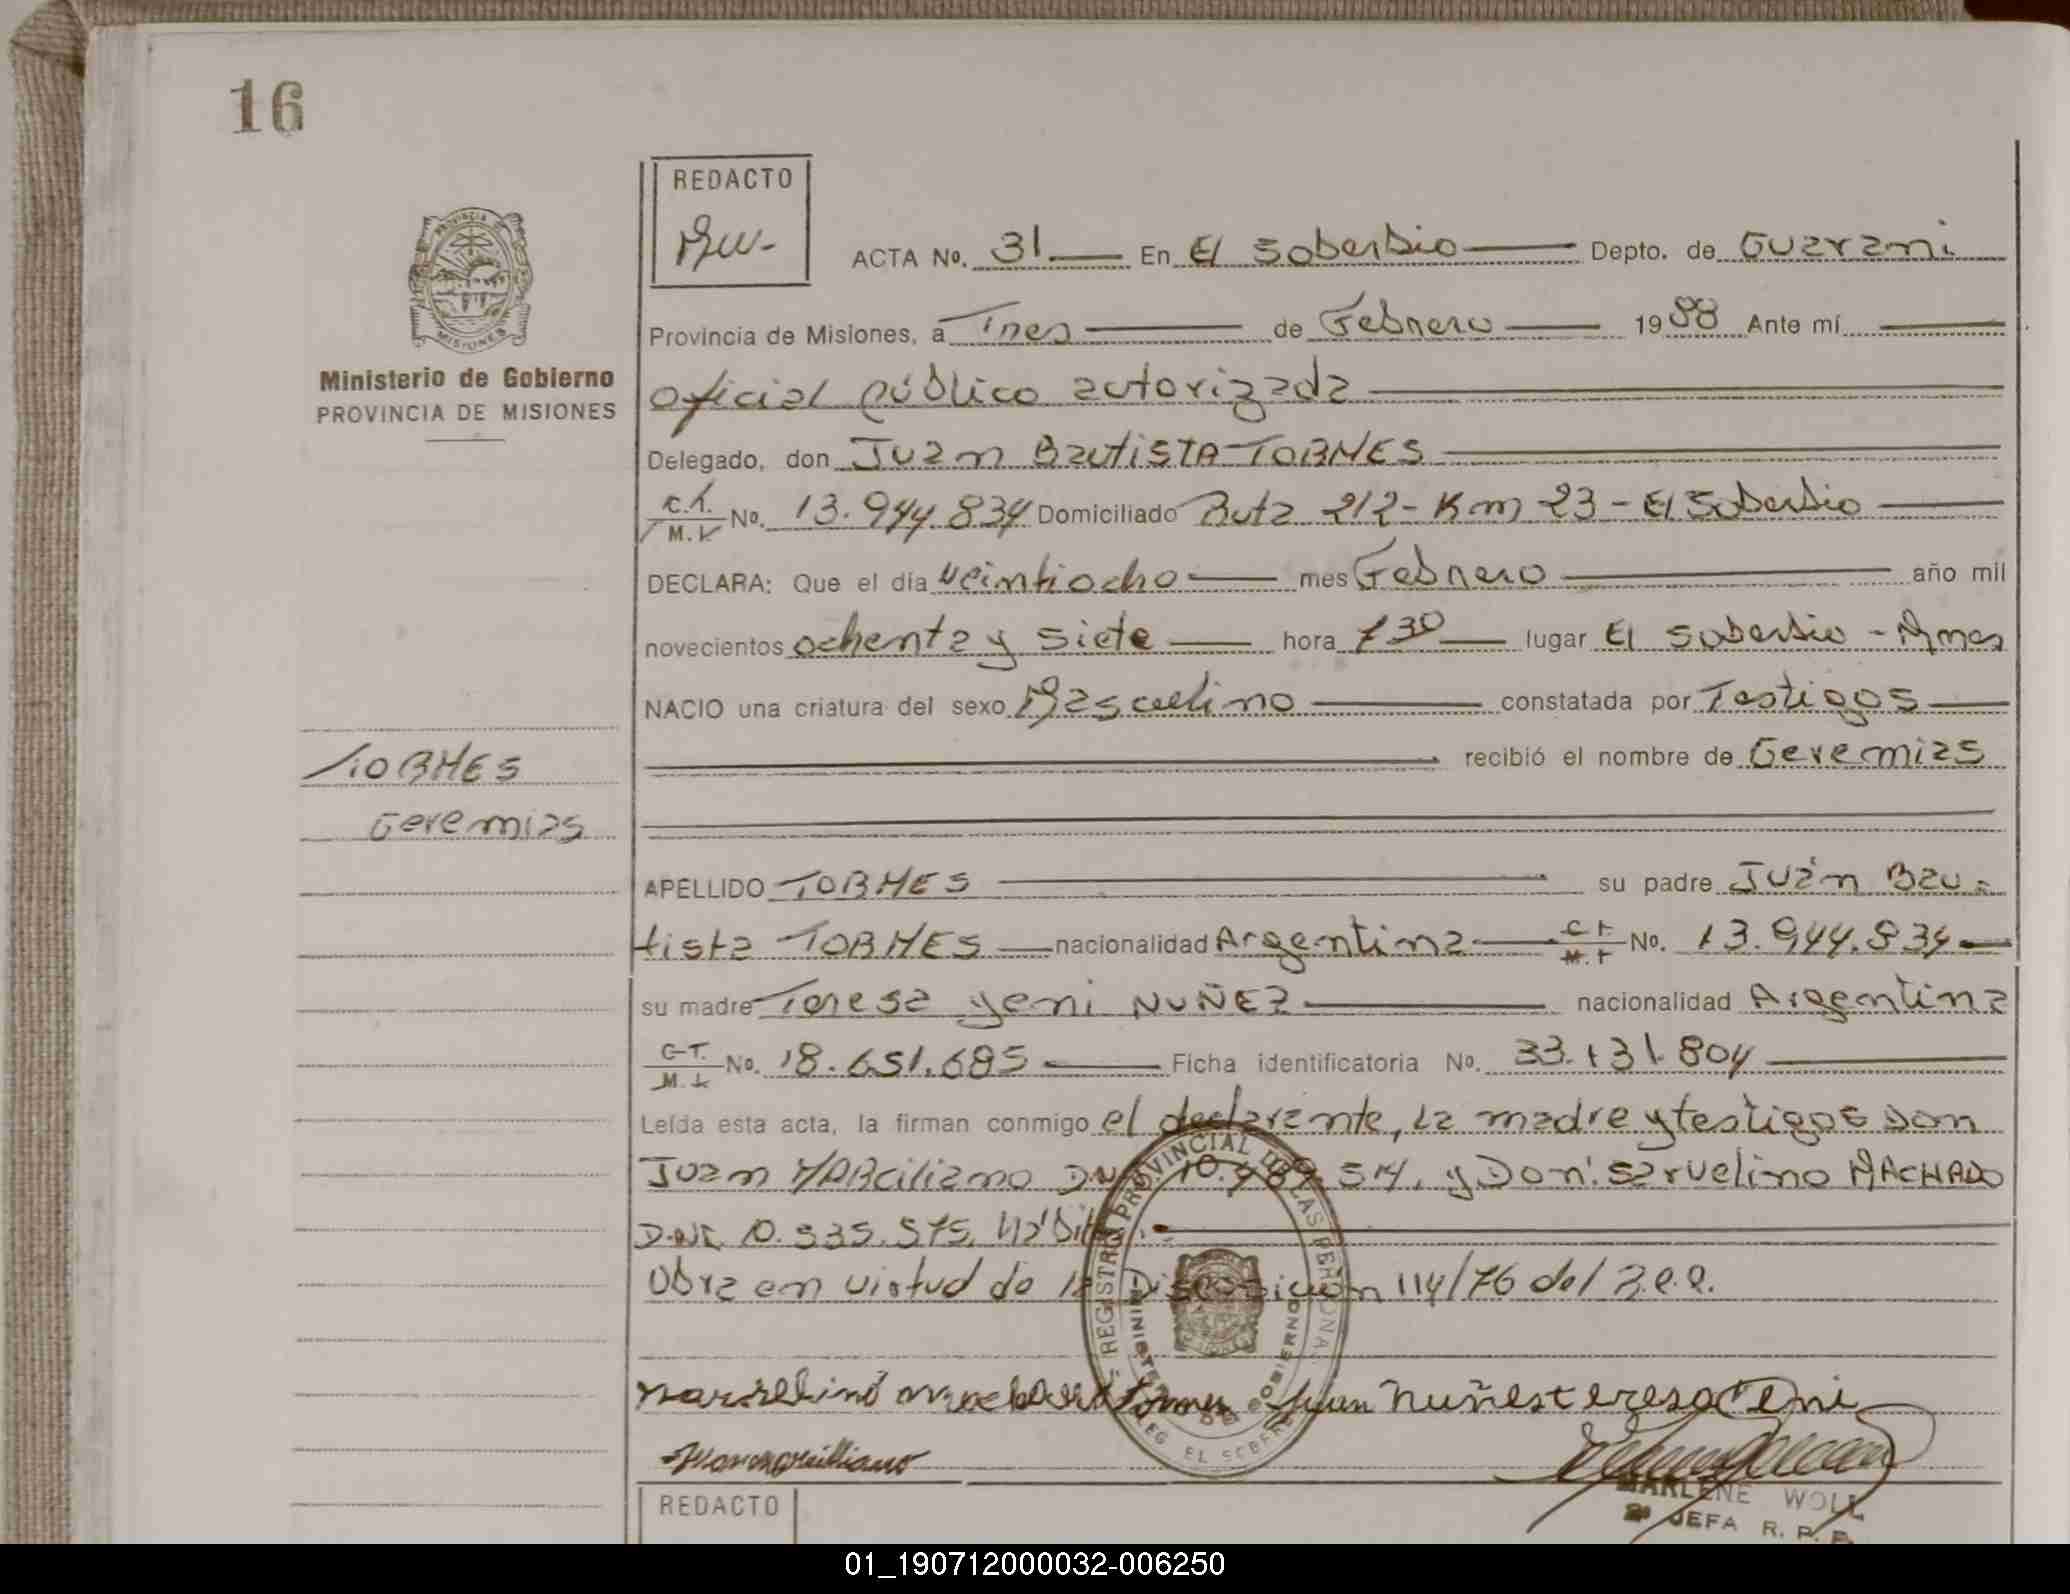 16
REDACTO
ACTA No. 31 En El Soberbio Depto. de Guarani
Provincia de Misiones, a Tres de Febrero 1988 Ante mí
Ministerio de Gobierno
PROVINCIA DE MISIONES
oficial público autorizada
Delegado, don Juan Bautista TORMES
No. 13.944.834 Domiciliado Ruta 212 - Km 23 - El Soberbio
M. I.
DECLARA: Que el día Veintiocho mes Febrero año mil
novecientos ochenta y siete hora 7 30 lugar El Soberbio - Mnes
NACIO una criatura del sexo Masculino constatada por Testigos
recibió el nombre de Geremias
TORMES
Geremias
APELLIDO TORMES su padre Juan Bau-
tista TORMES nacionalidad Argentina C I No. 13.944.834
M. I
su madre Teresa Yeni NUÑEZ nacionalidad Argentina
C-I. No. 18.651.685 Ficha identificatoria No. 33.131.804
M. I
Leída esta acta, la firman conmigo el declarante, la madre y testigos Don
Juan MARciliano 10.489.514, y Don: Sarvelino MACHADO
D.N.I. 10.535.575,
Obra en virtud de la Disposición 114/76 del R.P.P.
REGISTRO PROVINCIAL DE LAS PERSONAS
MINISTERIO DE GOBIERNO
REG EL SOBERBIO
Juan Nuñes teresa Yeni
MARLENE WOLL
2ª JEFA R. P. P.
REDACTO
01_190712000032-006250